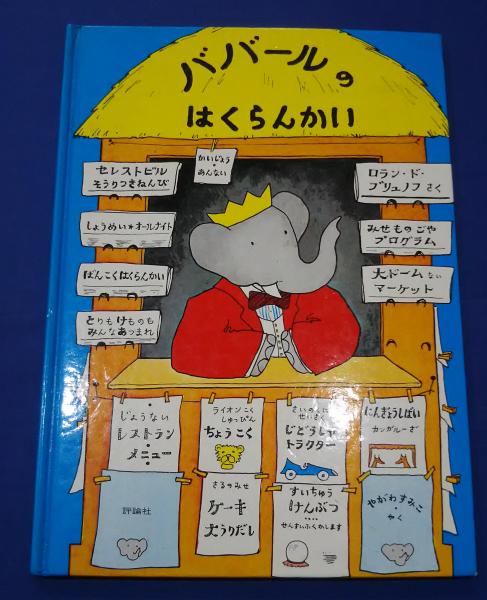 ババールの
はくらんかい
かいじょう
あんない
セレストビル
そうりつきねんび
しょうめい★オールナイト
ばんこくはくらんかい
とりもけものも
みんなあつまれ
ロラン・ド・
ブリュノフ さく
みせものごや
プログラム
大ドームない
マーケット
じょうない
レストラン
メニュー
評論社
ライオンこく
しゅっぴん
ちょうこく
さるのみせ
ケーキ
大うりだし
せいさく
じどうしゃ
トラクター
すいちゅう
けんぶつ
せんすいふくかします
にんぎょうしばい
カンガルーざ
やがわすみこ
・やく